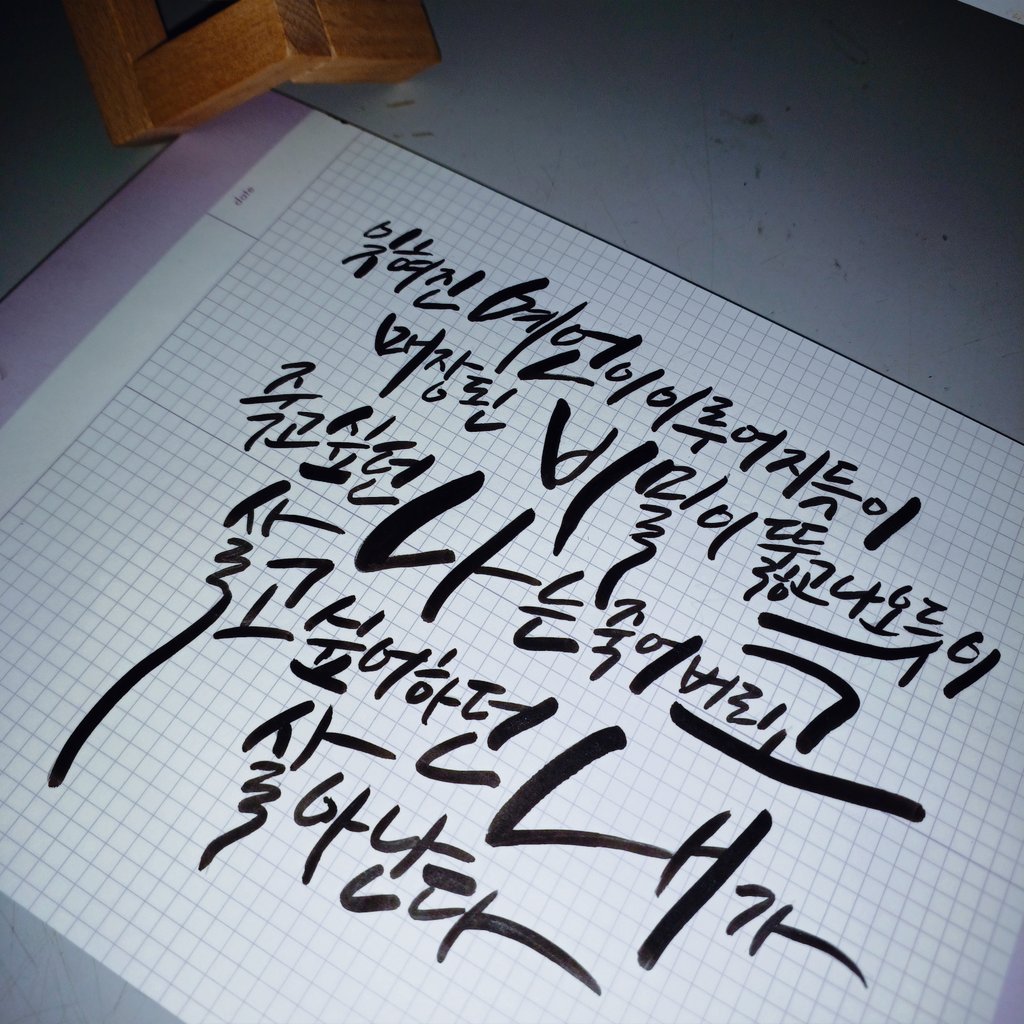 date
잊혀진 예언이 이루어지듯이
매장된 비밀이 뚫고 나오듯이
죽고싶던 나는 죽어버리고
살고싶어하던 내가
살아난다